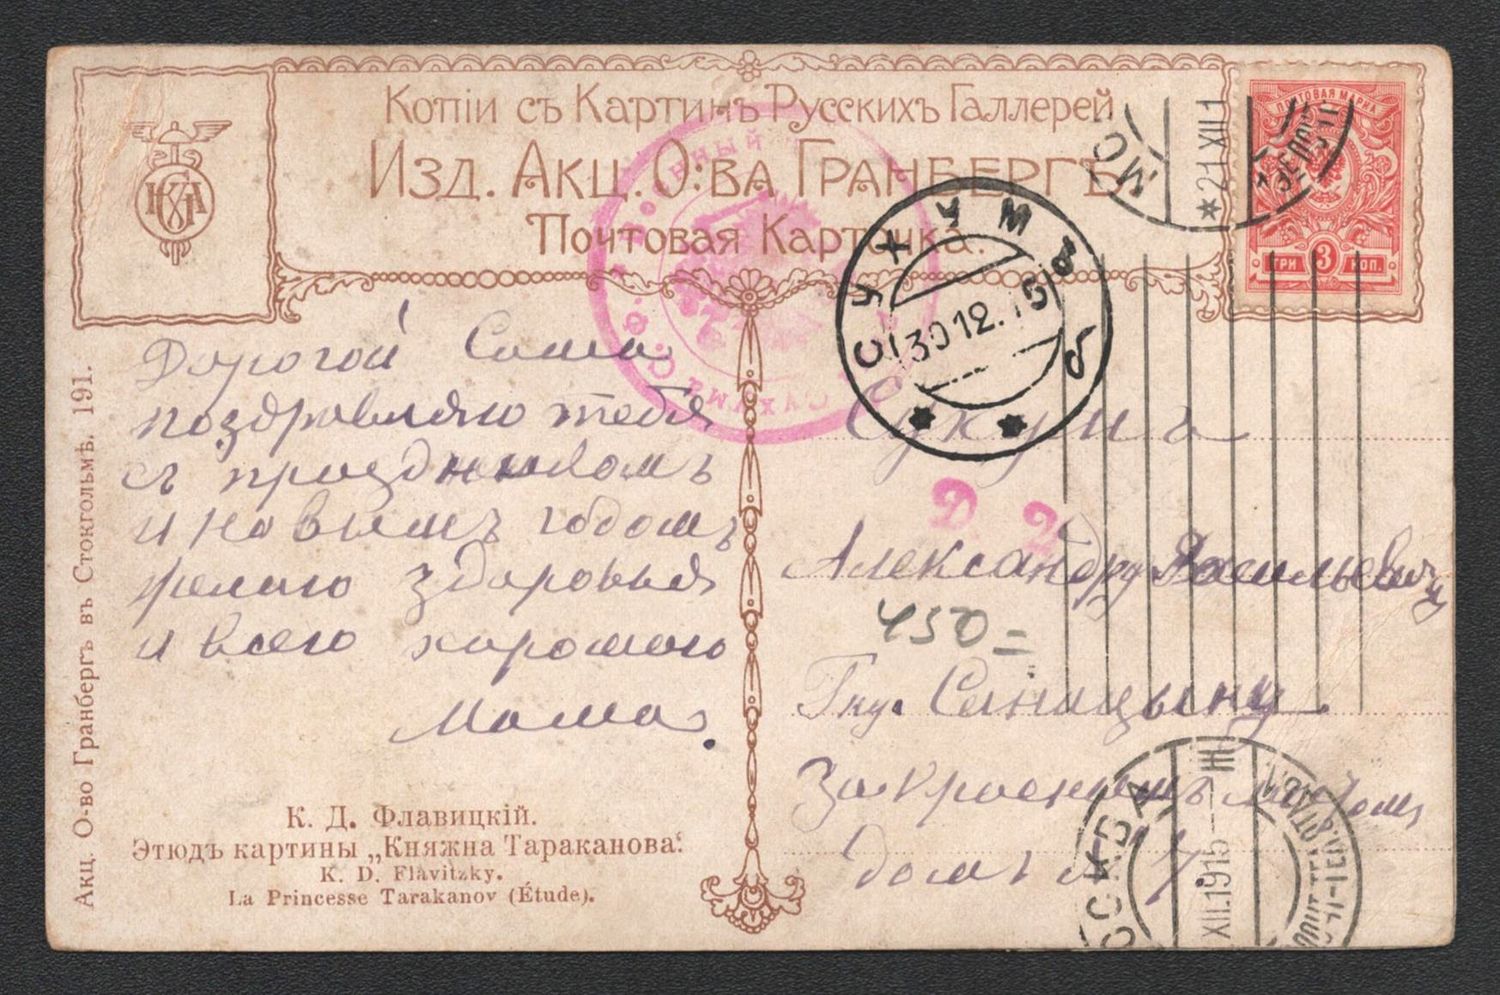 Копіи съ Картинъ Русскихъ Галлерей
Изд. Акц. О:ва Гранбергъ
Почтовая Карточка.
ПОЧТОВАЯ МАРКА
ТРИ 3 КОП.
МО
*21 XII 1
СУХУМЪ
30 12. 15
б
военный
Сухумъ
Д. 2
450=
Дорогой Саша
поздравляю тебя
съ праздникомъ
и новымъ годомъ
желаю здоровья
и всего хорошого
Мама.
Сухумъ
Александру Васильевичу
Гну.
За мостомъ
домъ
К. Д. Флавицкій.
Этюдъ картины „Княжна Тараканова“.
K. D. Flavitzky.
La Princesse Tarakanov (Étude).
Акц. О-во Гранбергъ въ Стокгольмѣ. 191.
МОСКВА
XII.1915